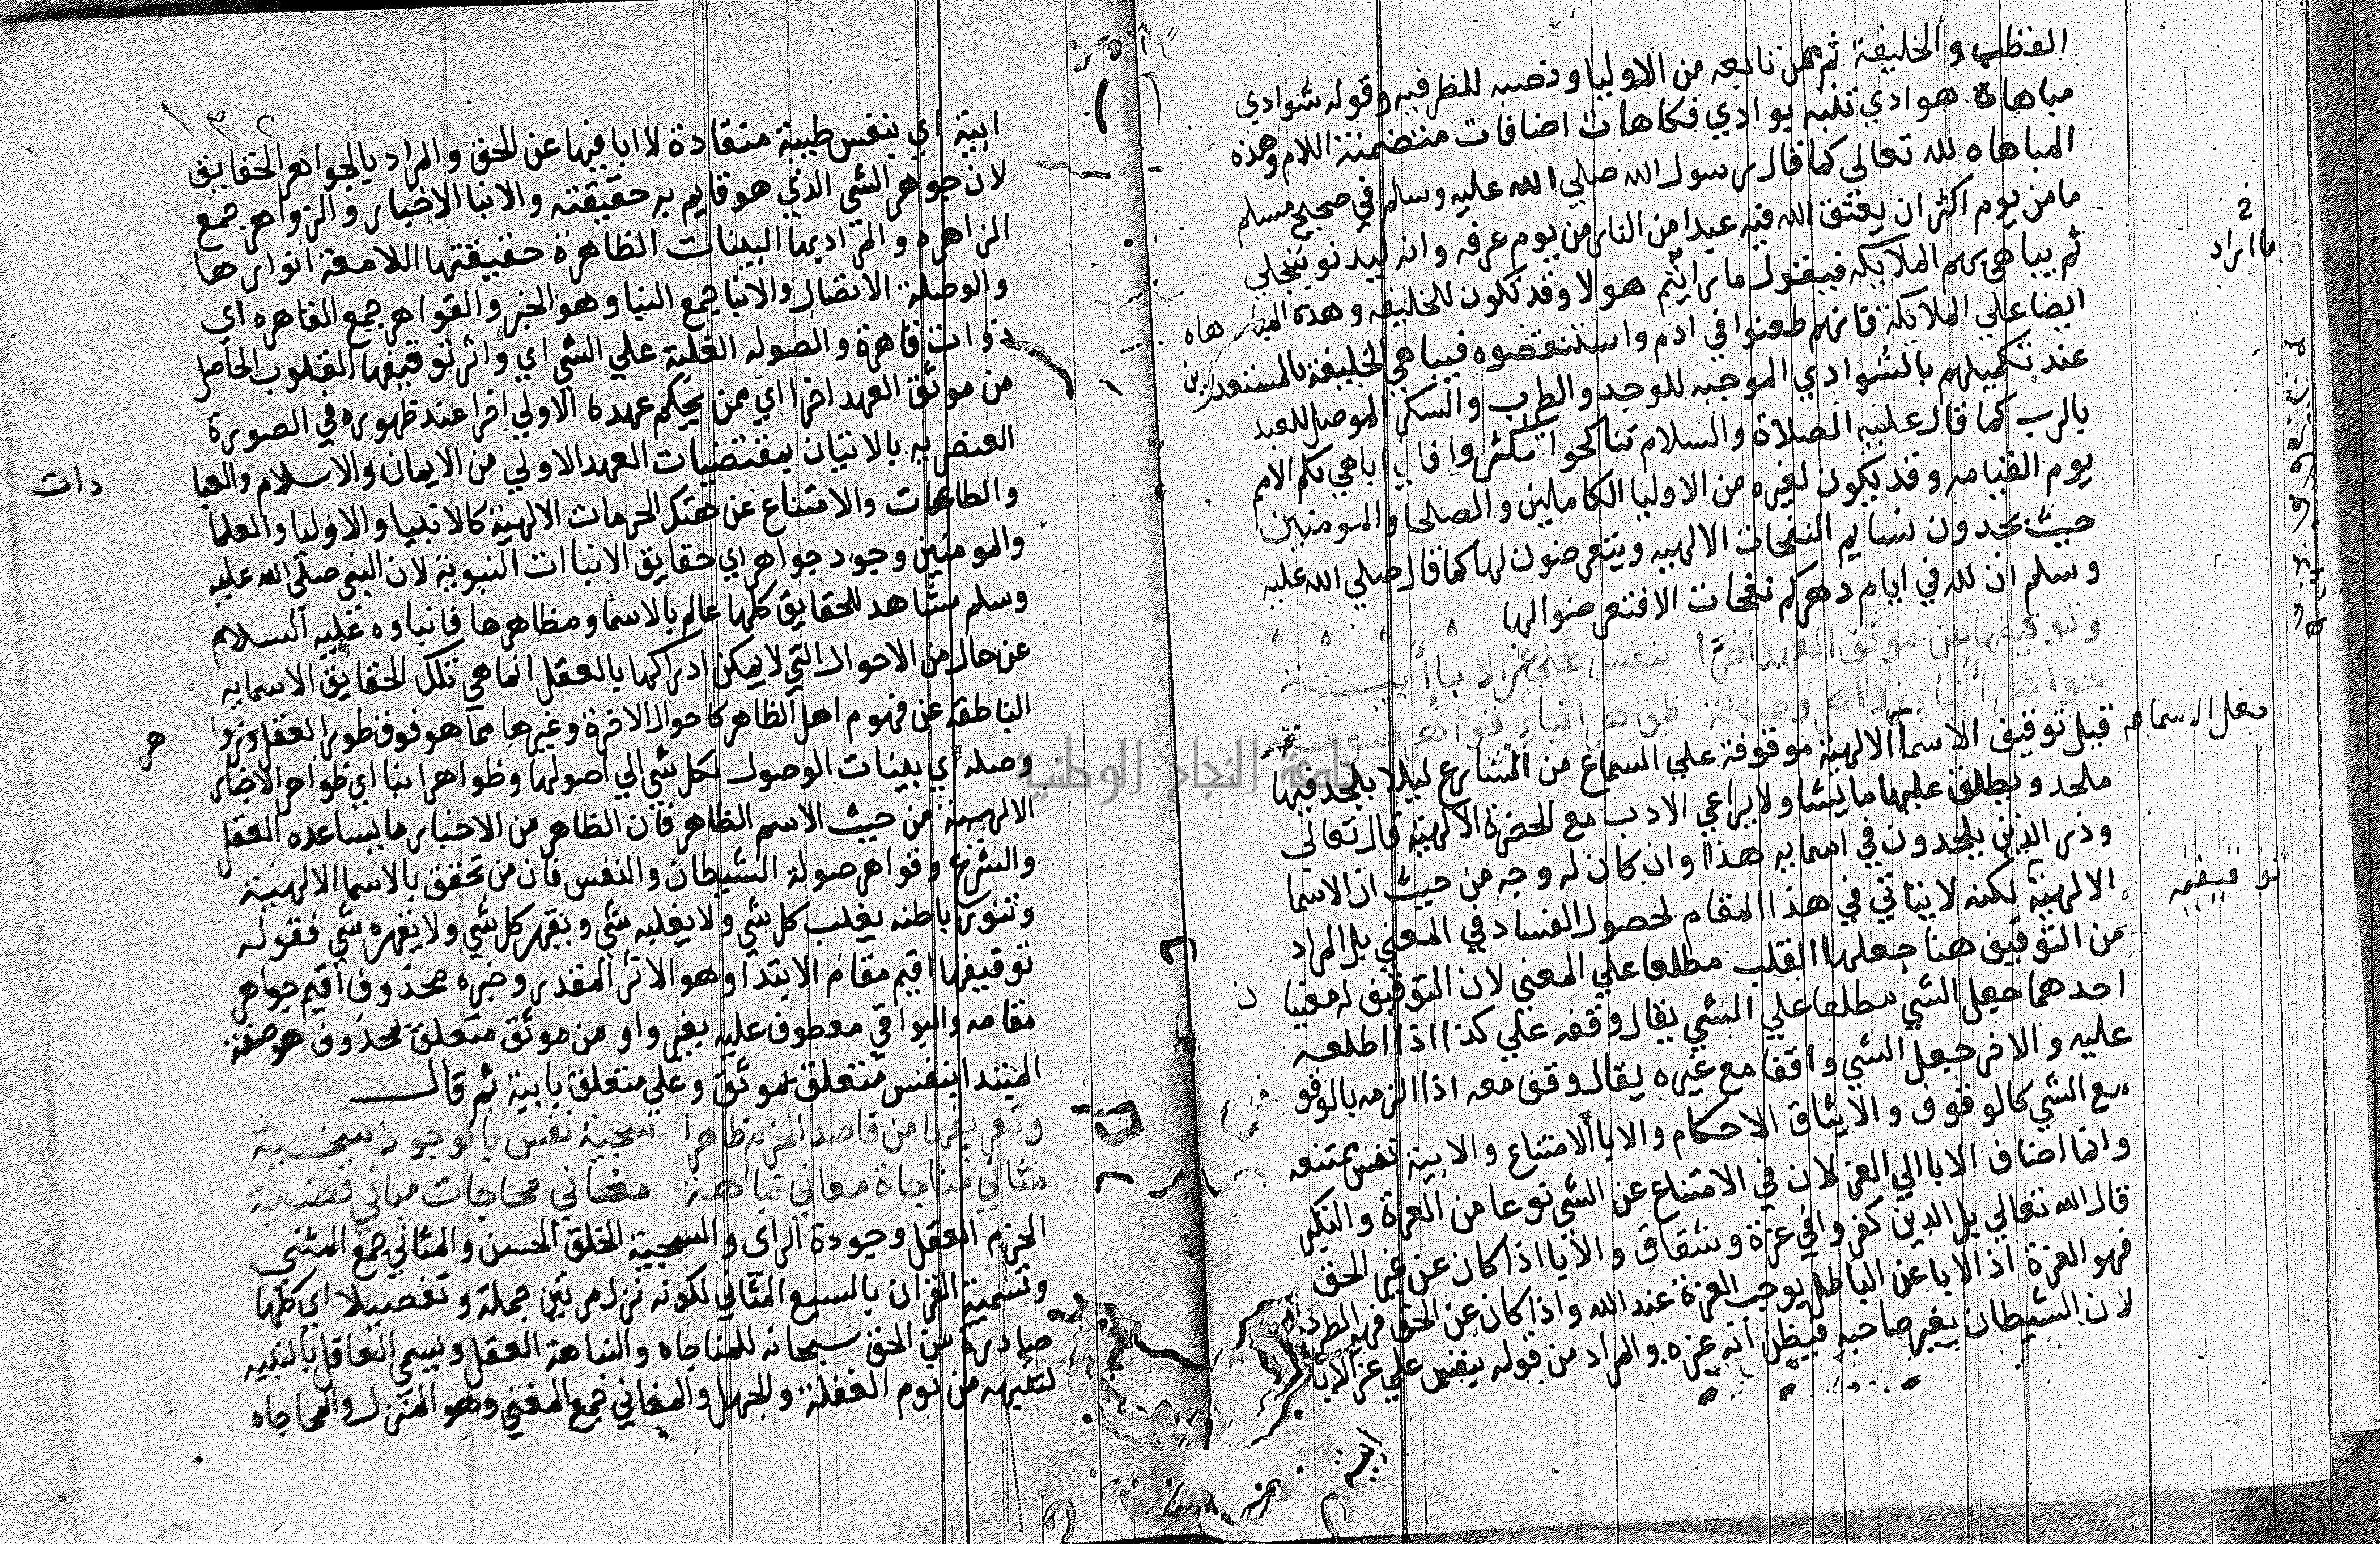 القطب والخليفة ثم ممن تابعه من الاوليا ونصبه للظرفيه وقوله شوادي
مباهاة هوادي تنبه بوادي فكاهات اضافات متضمنة اللام وهذه
المباهاه لله تعالى كما قال رسول الله صلي الله عليه وسلم في صحيح مسلم
ما من يوم اكثر ان يعتق الله فيه عبدا من النار من يوم عرفه وانه ليدنو يتجلي
ثم يباهي بهم الملايكه فيقول ما اراد هولا وقد تكون للخليفه وهذه المباهاه
ايضا علي الملايكة فانهم طعنوا في ادم واستنقضوه فيباهي الخليفة بالمستعدين
عند تكميلهم بالشوادي الموجبه للوجد والطرب والسكر الموصل للعبد
بالرب كما قال عليه الصلاة والسلام تناكحوا تكثروا فاني اباهي بكم الامم
يوم القيامه وقد يكون لغيره من الاوليا الكاملين والصلحا والمومنين
حيث يجدون نسايم النفحات الالهيه ويتعرضون لها كما قال صلي الله عليه
وسلم ان لله في ايام دهركم نفحات الا فتعرضوا لها
وتوقيفها من موثق العهد اخرا بنفس علي عز الاباء أبية
جواهر أنباء زواهر وصلة ظواهر انباء قواهر صولة
قيل توقيف الاسما الالهية موقوفة علي السماع من الشارع ليلا يلحد فيها
ملحد ويطلق عليها ما يشا ولا يراعي الادب مع الحضرة الالهية قال تعالى
وذر الذين يلحدون في اسمايه هذا وان كان له وجه من حيث ان الاسما
الالهية لكنه لا يتاتي في هذا المقام لحصول الفساد في المعني بل المراد
من التوقيف هنا جعلها القلب مطلعا علي المعني لان التوقيف له معنيان
احدهما جعل الشي مطلعا علي الشي يقال وقفه علي كذا اذا اطلعه
عليه والاخر جعل الشي واقفا مع غيره يقال وقف معه اذا الزمه بالوقو
مع الشي كالوقوف والايثاق الاحكام والابا الامتناع والابية نفس ممتنعه
وانما اضاف الابا الي العز لان في الامتناع عن الشي نوعا من العزة والتكبر
قال الله تعالي بل الذين كفروا في عزة وشقاق والابا اذا كان عن غير الحق
فهو العزة اذ الابا عن الباطل يوجب العزة عند الله واذا كان عن الحق فهو الطرد
لان الشيطان يغير صاحبه فيظن انه عزه والمراد من قوله بنفس علي عز الابا
ابية
ما اراد
توقيفه
ابية اي بنفس طيبة منقادة لا ابا فيها عن الحق والمراد بالجواهر الحقايق
لان جوهر الشي الذي هو قايم به حقيقته والانبا الاخبار والزواهر جمع
الزاهره والمراد بها البينات الظاهرة حقيقتها اللامعة انوارها
والوصلة الاتصال والانبا جمع النبا وهو الخبر والقواهر جمع القاهره اي
ذوات قاهرة والصوله الغلبة علي الشي اي واثر توقيفها القلوب الحاصل
من موثق العهد اخرا اي ممن يحكم عهده الاولي اخرا عند ظهوره في الصورة
العنصريه بالاتيان بمقتضيات العهد الاولي من الايمان والاسلام والعبا
دات
والطاعات والامتناع عن هتك الحرمات الالهية كالانبيا والاوليا والعلما
والمومنين وجود جواهر اي حقايق الانباات النبوية لان النبي صلي الله عليه
وسلم مشاهد للحقايق كلها عالم بالاسما ومظاهرها فانباوه عليه السلام
عن حال من الاحوال التي لا يمكن ادراكها بالعقل انما هي تلك الحقايق الاسمايه
الناطقه عن فهوم اهل الظاهر كاحوال الاخرة وغيرها مما هو فوق طور العقل وزوا
هر
وصله اي بينات الوصول لكل شي الي اصولها وظواهر انبا اي ظواهر الاخبار
الالهية من حيث الاسم الظاهر فان الظاهر من الاخبار ما يساعده العقل
والشرع وقواهر صولة الشيطان والنفس فان من تحقق بالاسما الالهية
وتنور باطنه يغلب كل شي ولا يغلبه شي ويقهر كل شي ولا يقهره شي فقوله
توقيفها اقيم مقام الابتدا وهو الاثر المقدر وخبره محذوف اقيم جواهر
مقامه والبواقي معطوف عليه بغير واو من موثق متعلق بمحذوف هو صفة
المبتدا بنفس متعلق بموثق وعلي متعلق بابية ثم قال
وتعريفها من قاصد الحزم ظاهرا سجية نفس بالوجود سخية
مثاني مناجاة معاني نباهة مغاني محاجات مباني قضية
الحزم العقل وجودة الراى والسجية الخلق الحسن والمثاني جمع المثنى
وتسمية القران بالسبع المثاني لكونه نزل مرتين جملة وتفصيلا اي كلها
صادرة من الحق سبحانه للمناجاه والنباهة العقل ويسمى العاقل بالنبيه
لتنبهه من نوم الغفلة والجهل والمغاني جمع المغني وهو المنزل والمحاجاه
جامعة النجاح الوطنية